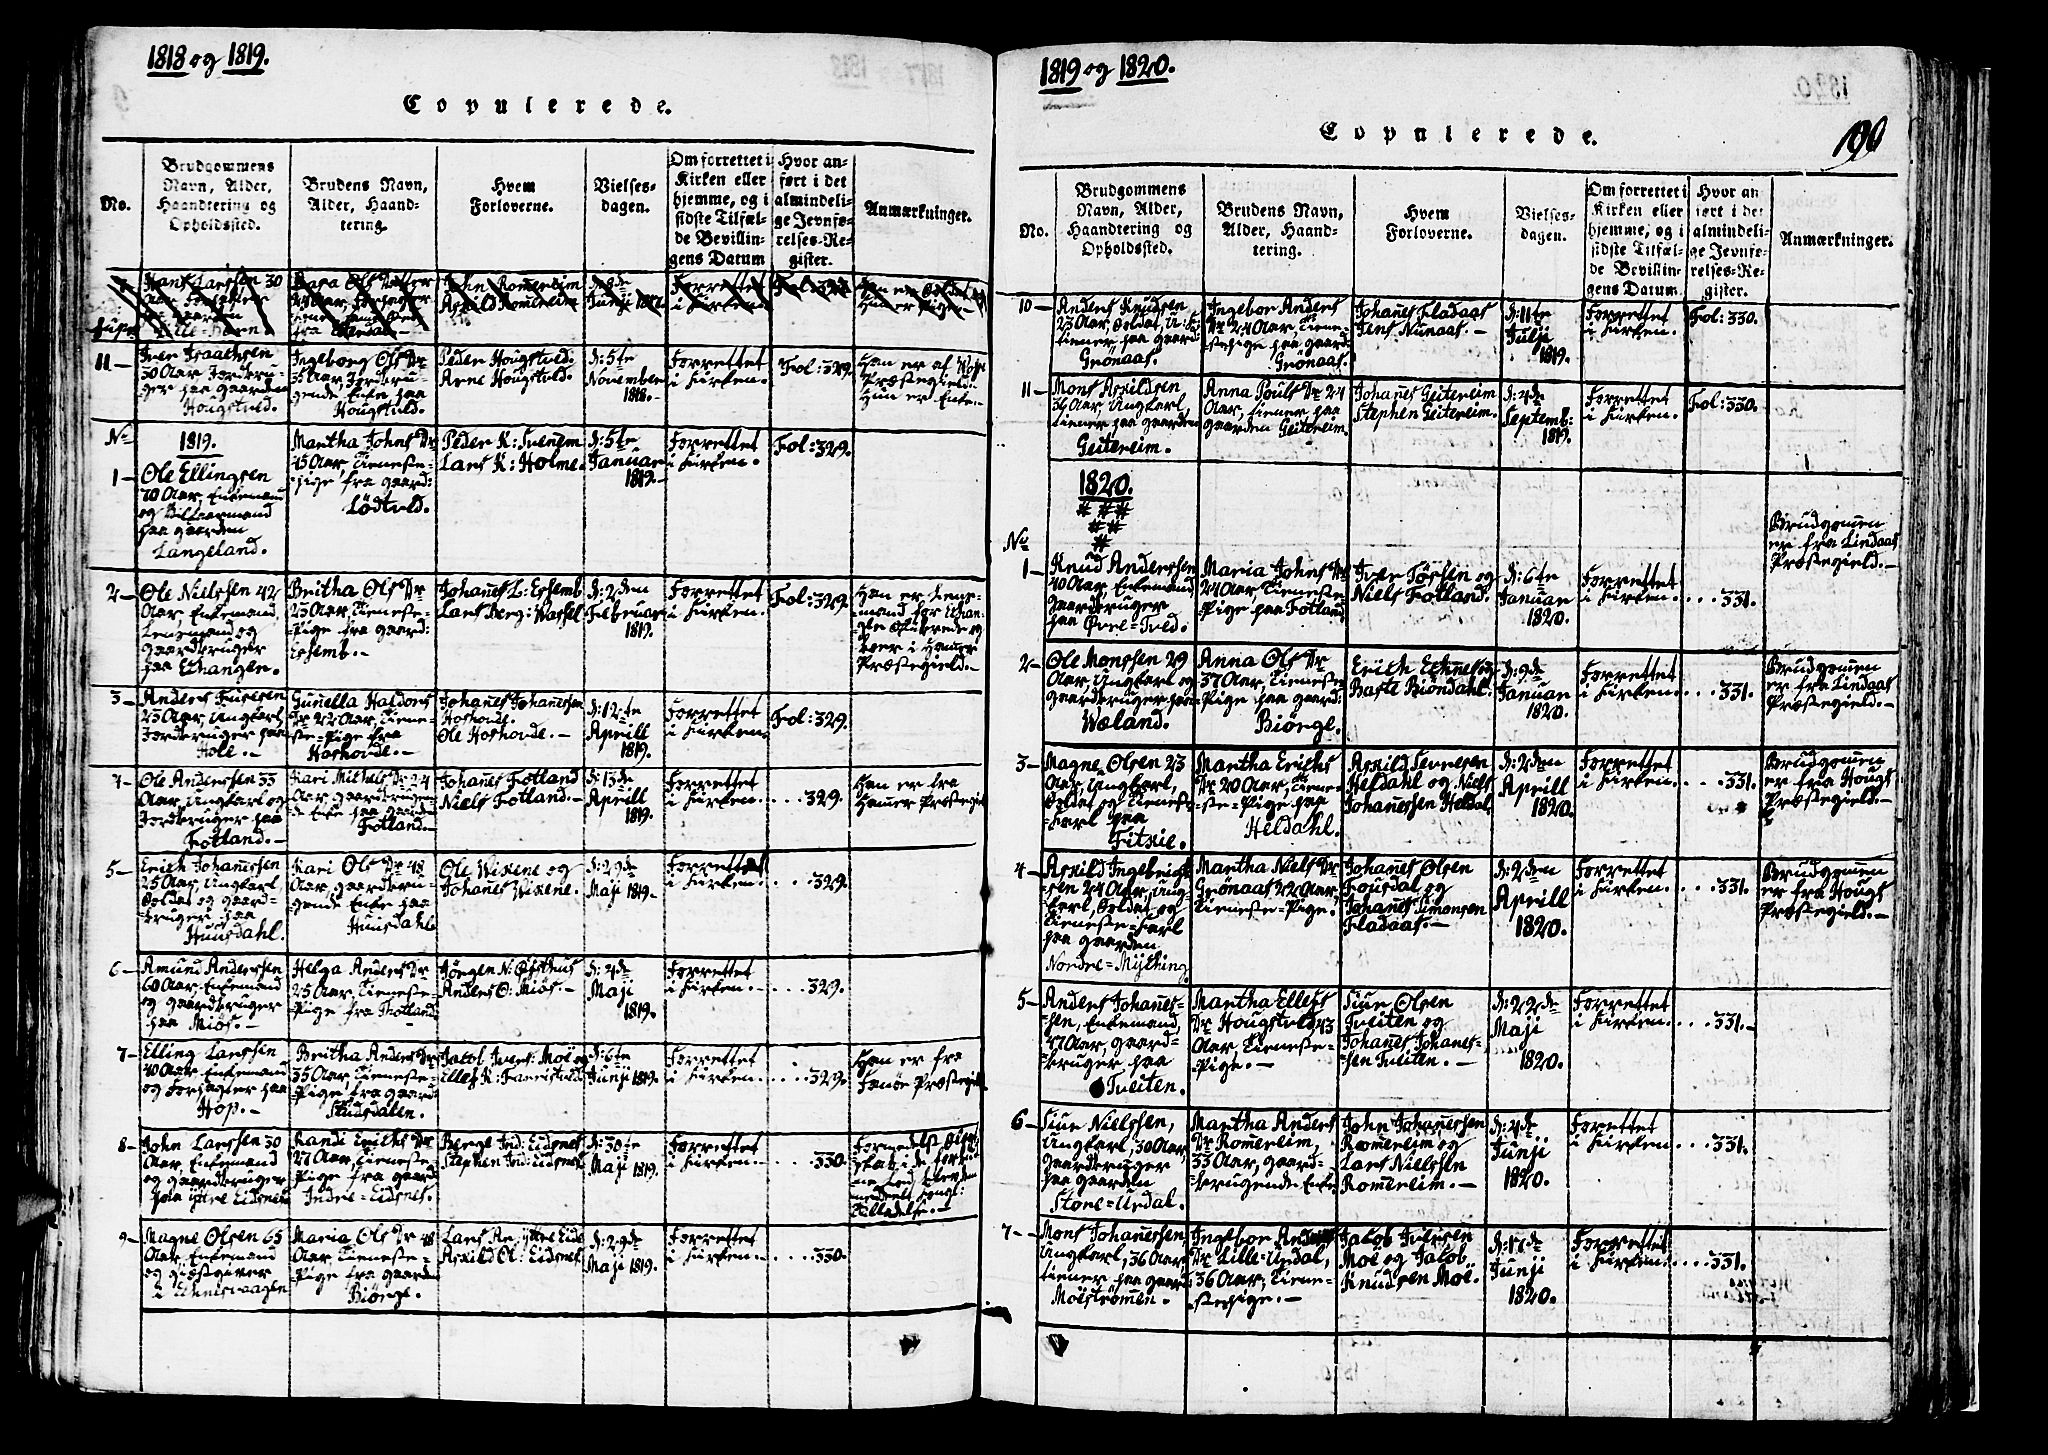 1818 og 1819.
Copulerede.
No.
Brudgommens
Navn, Alder,
Haandtering og
Opholdssted.
Brudens Navn,
Alder, Haand-
tering.
Hvem
Forloverne.
Vielses-
dagen.
Om forrettet i
Kirken eller
hjemme, og i
sidste Tilfæl-
de Bevillin-
gens Datum
Hvor an-
ført i det
almindeli-
ge Jevnfø-
relses-Re-
gister.
Anmærkninger.
Hans Larssen 30
John Romereim
Forrettet
i Kirken
11 –
Iver Isaachsen
30 Aar Jordbru-
ger paa gaarden
Hougstvld.
Ingeborg Ols Dr
35 Aar, Jordbru-
gende Enke paa
Hougstvld.
Peder Hougstvld.
Arne Hougstvld.
d: 5te
November
1818. –
Forrettet
i Kirken.
Fol: 329.
Han er af
Præstegield. –
Hun er Enke. –
No
1819.
1 –
Ole Ellingsen
70 Aar, Enkemand
og
paa gaarden
Langeland.
Martha Johns Dr
45 Aar, Tieneste-
pige fra gaard:
Lødtvld.
Peder K: Svenem
Lars K: Holme.
d: 5te
Januar
1819. –
Forrettet
i Kirken.
Fol: 329.
2 –
Ole Nielssen 42
Aar, Enkemand,
Lensmand og
gaardbruger
paa Echangen.
Britha Ols Dr
23 Aar, Tieneste-
Pige fra gaard:
Eshemb. –
Johanes L: Eshemb
Lars Berg: Wassel
d: 2den
Februar
1819.
Forrettet
i Kirken.
Fol: 329.
Han er Lens-
mand for Echan-
gers Skibrede og
boer i Hammer
Præstegield. –
3 –
Anders
23 Aar, Ungkarl
Jordbruger paa
Hole. –
Gunella Haldors
Dr 22 Aar, Tiene-
ste-Pige fra
Hoshovde. –
Johanes Johanessen
Hoshovde.
Ole Hoshovde. –
d: 12te
Aprill
1819.
Forrettet
i Kirken.
Fol: 329.
4 –
Ole Anderssen 33
Aar, Ungkarl og
Jordbruger paa
Fotland. –
Kari Michels Dr 24
Aar, gaardbrugen-
de Enke paa gaarden
Fotland. –
Johanes Fotland
Niels Fotland. –
d: 13de
Aprill
1819.
Forrettet
i Kirken.
. . . . 329.
Han er fra
Hamer Præstegi
5 –
Erich Johanessen
25 Aar, Ungkarl
Soldat og gaard-
bruger paa
Huusdahl.
Kari Ols Dr 48
Aar, gaardbru-
gende Enke paa
Huusdahl.
Ole Wixene og
Johanes Wixene.
d: 29de
Maji 1819.
Forrettet
i Kirken.
. . . . 329.
6 –
Amund Anderssen
60 Aar, Enkemand
og gaardbruger
paa Miøs. –
Helga Anders Dr
25 Aar, Tieneste-
Pige fra Fotland
Jørgen N: Øfsthus
Anders O: Miøs. –
d: 4de
Maji
1819.
Forrettet
i Kirken.
. . . . 329.
7 –
Elling Larssen
40 Aar, Enkemand
og Forpagter paa
Hop. –
Britha Anders Dr
35 Aar, Tieneste-
Pige fra gaard:
Studsdalen.
Jacob Ivers: Moe og
Ellef K: Fannistvld
d: 6te
Junji 1819.
Forrettet
i Kirken.
. . . . 329.
Han er fra
Fanøe Præstegie
8 –
John Larssen 30
Aar, Enkemand
og gaardbruger
paa Yttre Eidsnes
Randi Erichs Dr
27 Aar, Tieneste-
Pige fra gaard
Indre-Eidsnes.
Berge Ind: Eidsnes
Stephen Ind: Eidsnes
d: 30te
Maji 1819.
Forrettet
i Kirken.
. . . . 330.
Tilladelse. –
9 –
Magne Olsen 65
Aar, Enkemand
og giæstgiver
i Echnesvaagen
Maria Ols Dr 48
Aar, Tieneste-
Pige fra gaarden
Biørge.
Lars An: Yttre Eids
Askild Ol: Eidsnes
d: 29de
Maji 1819.
Forrettet
i Kirken.
. . . . 330.
1819 og 1820.
Copulerede.
190
No.
Brudgommens
Navn, Alder,
Haandtering og
Opholdssted.
Brudens Navn,
Alder, Haand-
tering.
Hvem
Forloverne.
Vielses-
dagen.
Om forrettet i
Kirken eller
hjemme, og i
sidste Tilfæl-
de Bevillin-
gens Datum.
Hvor an
ført i det
almindeli-
ge Jevnfø-
relses-Re-
gister.
Anmærkninger.
10 –
Anders Knudsen
23 Aar, Soldat,
tiener paa gaard
Grønaas.
Ingebor Anders
Dr 24 Aar, Tiene-
stepige paa gaard
Grønaas.
Johanes Fladaas
Jens Nunaas. –
d: 11te
Julji
1819.
Forrettet
i Kirken.
Fol: 330.
11 –
Mons Askildsen
Aar, Ungkarl,
tiener paa gaarden
Geitereim.
Anna Pouls Dr 24
Aar, tiener paa
gaarden Geitereim.
Johanes Geitereim
Stephen Geitereim.
d: 4de
Septemb:
1819.
Forrettet
i Kirken.
Fol: 330.
1820.
No
1 –
Knud Anderssen
40 Aar, Enkemand
gaardbruger
paa Øvre-Tvld.
Maria Johns Dr
24 Aar, Tieneste-
Pige paa Fotland
Iver Tørsen og
Niels Fotland.
d: 6te
Januar
1820.
Forrettet
i Kirken.
. . . 331.
Brudgomen
er fra Lindaas
Præstegield. –
2 –
Ole Monssen 29
Aar, Ungkarl og
gaardbruger paa
Wæland.
Anna Ols Dr
37 Aar, Tieneste
Pige paa gaard:
Biørge.
Erich
Baste Biøndahl.
d: 9de
Januar
1820.
Forrettet
i Kirken.
. . . 331.
Brudgomen
er fra Lindaas
Præstegield. –
3 –
Magne Olsen 23
Aar, Ungkarl,
Soldat og Tieneste
karl paa
Fitxie.
Martha Erichs
Dr 20 Aar, Tiene-
ste-Pige paa
Heldahl.
Askild Severen
Heldahl og Niels
Johanessen Heldal
d: 2den
Aprill
1820.
Forrettet
i Kirken.
. . . 331.
Brudgomen
er fra Hougs
Præstegield. –
4 –
Askild Ingebrigt-
sen 24 Aar, Ung-
karl, Soldat og
Tieneste-karl
paa gaarden
Nordre-Mykting
Martha Niels Dr
Grønaas 22 Aar
Tieneste-Pige.
Johanes Olsen
Fousdal og
Johanes Simonsen
Fladaas. –
d: 2den
Aprill
1820.
Forrettet
i Kirken.
. . . 331.
Brudgomen
er fra Hougs
Præstegield. –
5 –
Anders Johanes-
sen, Enkemand,
47 Aar, gaard-
bruger paa
Tveiten.
Martha Ellefs
Dr Hougstvld 23
Aar Tieneste-
Pige. –
Siur Olsen
Tveiten og
Johanes Johanes-
sen Tveiten. –
d: 22de
Maji
1820.
Forrettet
i Kirken.
. . . 331. –
6 –
Siur Nielssen,
Ungkarl, 30 Aar,
gaardbruger
paa gaarden
Store-Urdal.
Martha Anders
Dr Romereim,
33 Aar, gaard-
brugende Enke
John Johanessen
Romereim og
Lars Nielssen
Romereim. –
d: 4de
Junji
1820.
Forrettet
i Kirken.
. . . 331.
7 –
Mons Johanessen
Ungkarl, 36 Aar,
tiener paa gaard
Moestrømen.
Ingebor Anders
Dr Lille-Urdal,
36 Aar, Tiene-
stepige. –
Jacob Iversen
Moe og Jacob
Knudsen Moe.
d: 17de
Junji
1820.
Forrettet
i Kirken.
. . . 331.